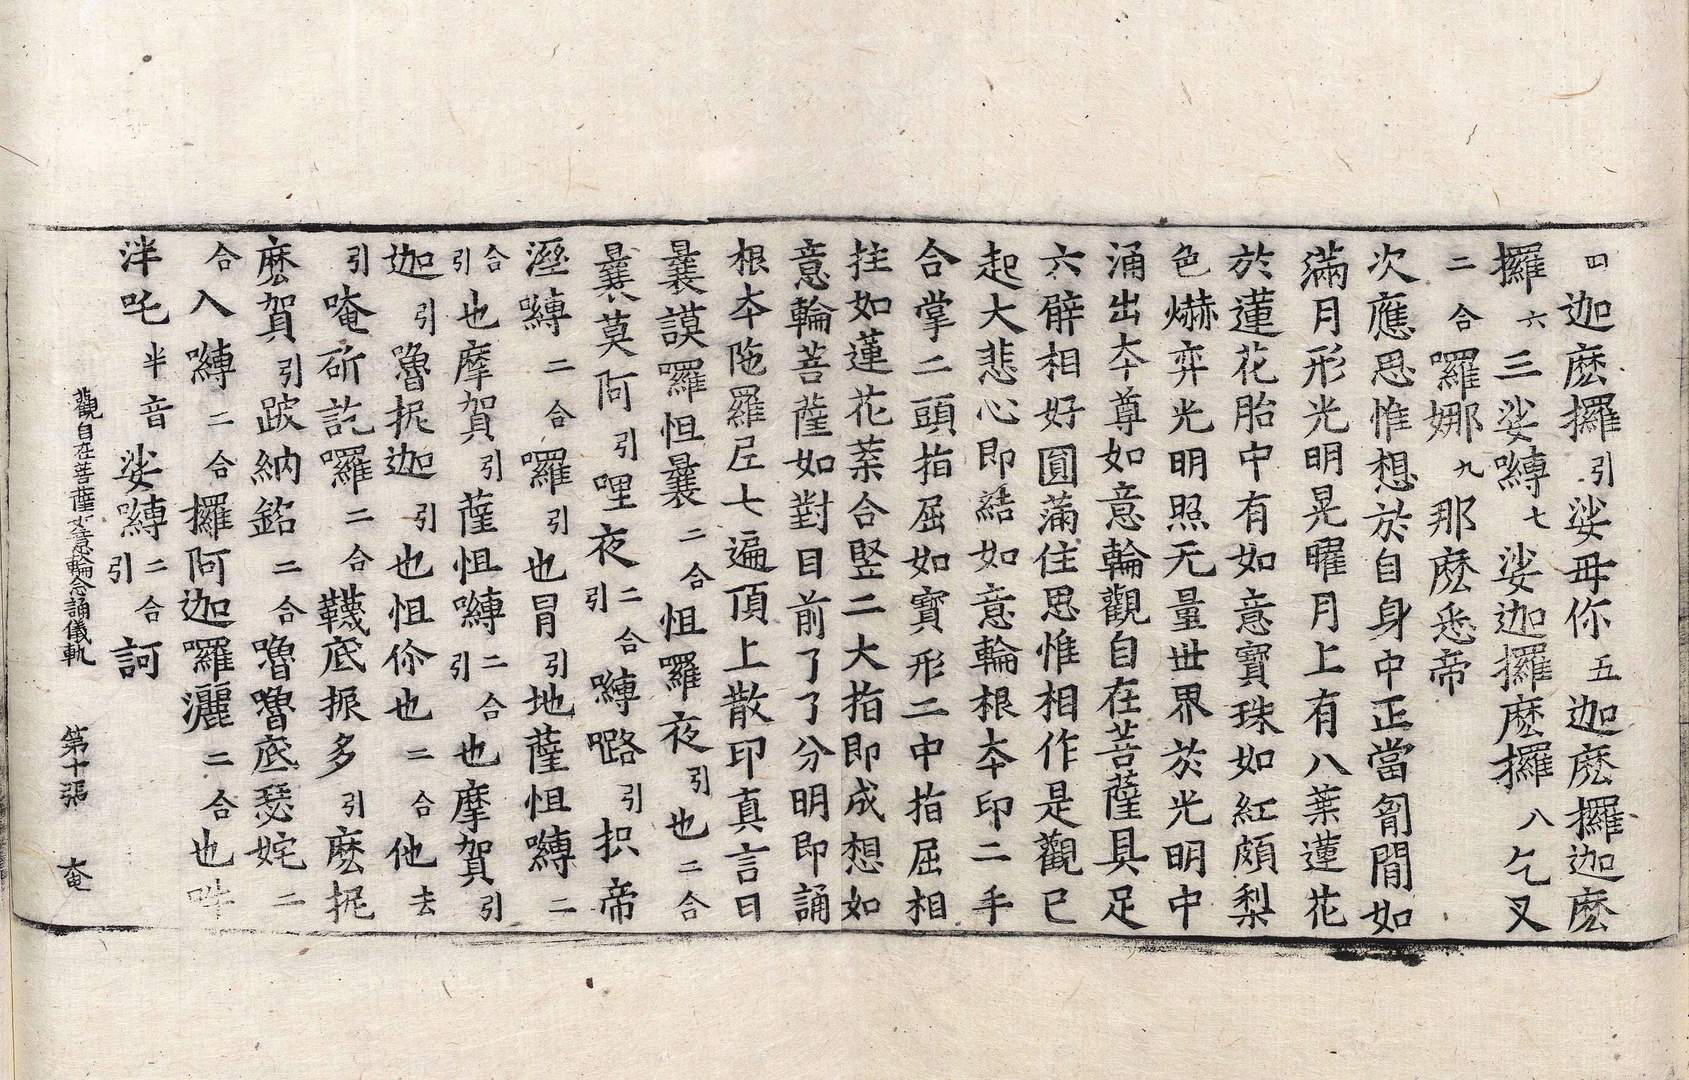 四迦麽攞引娑毋你五迦麽攞迦麽
攞六三娑嚩七娑迦攞麽攞八乞叉
二合囉娜九那麽悉帝
次應思惟想於自身中正當匈間如
滿月形光明晃曜月上有八葉蓮花
於蓮花胎中有如意寶珠如紅頗梨
色爀弈光明照无量世界於光明中
涌出夲尊如意輪觀自在菩薩具足
六臂相好圓滿住思惟相作是觀已
起大悲心即結如意輪根夲印二手
合掌二頭指屈如寶形二中指屈相
拄如蓮花葉合竪二大指即成想如
意輪菩薩如對目前了了分明即誦
根夲陁羅尼七遍頂上散印真言曰
曩謨囉怛曩二合怛羅夜引也二合
曩莫阿引哩夜引二合嚩𠼝引枳帝
溼嚩二合囉引也冒引地薩怛嚩二
合引也摩賀引薩怛嚩引二合也摩賀引
迦引嚕抳迦引也怛你也二合他去
引唵斫訖囉二合韈底振多引麽抳
麽賀引跛納銘二合嚕嚕底瑟姹二
合入嚩二合攞阿迦囉灑二合也吽
泮吒半音娑嚩引二合訶
觀自在菩薩如意輪念誦儀軌　第十張　奄